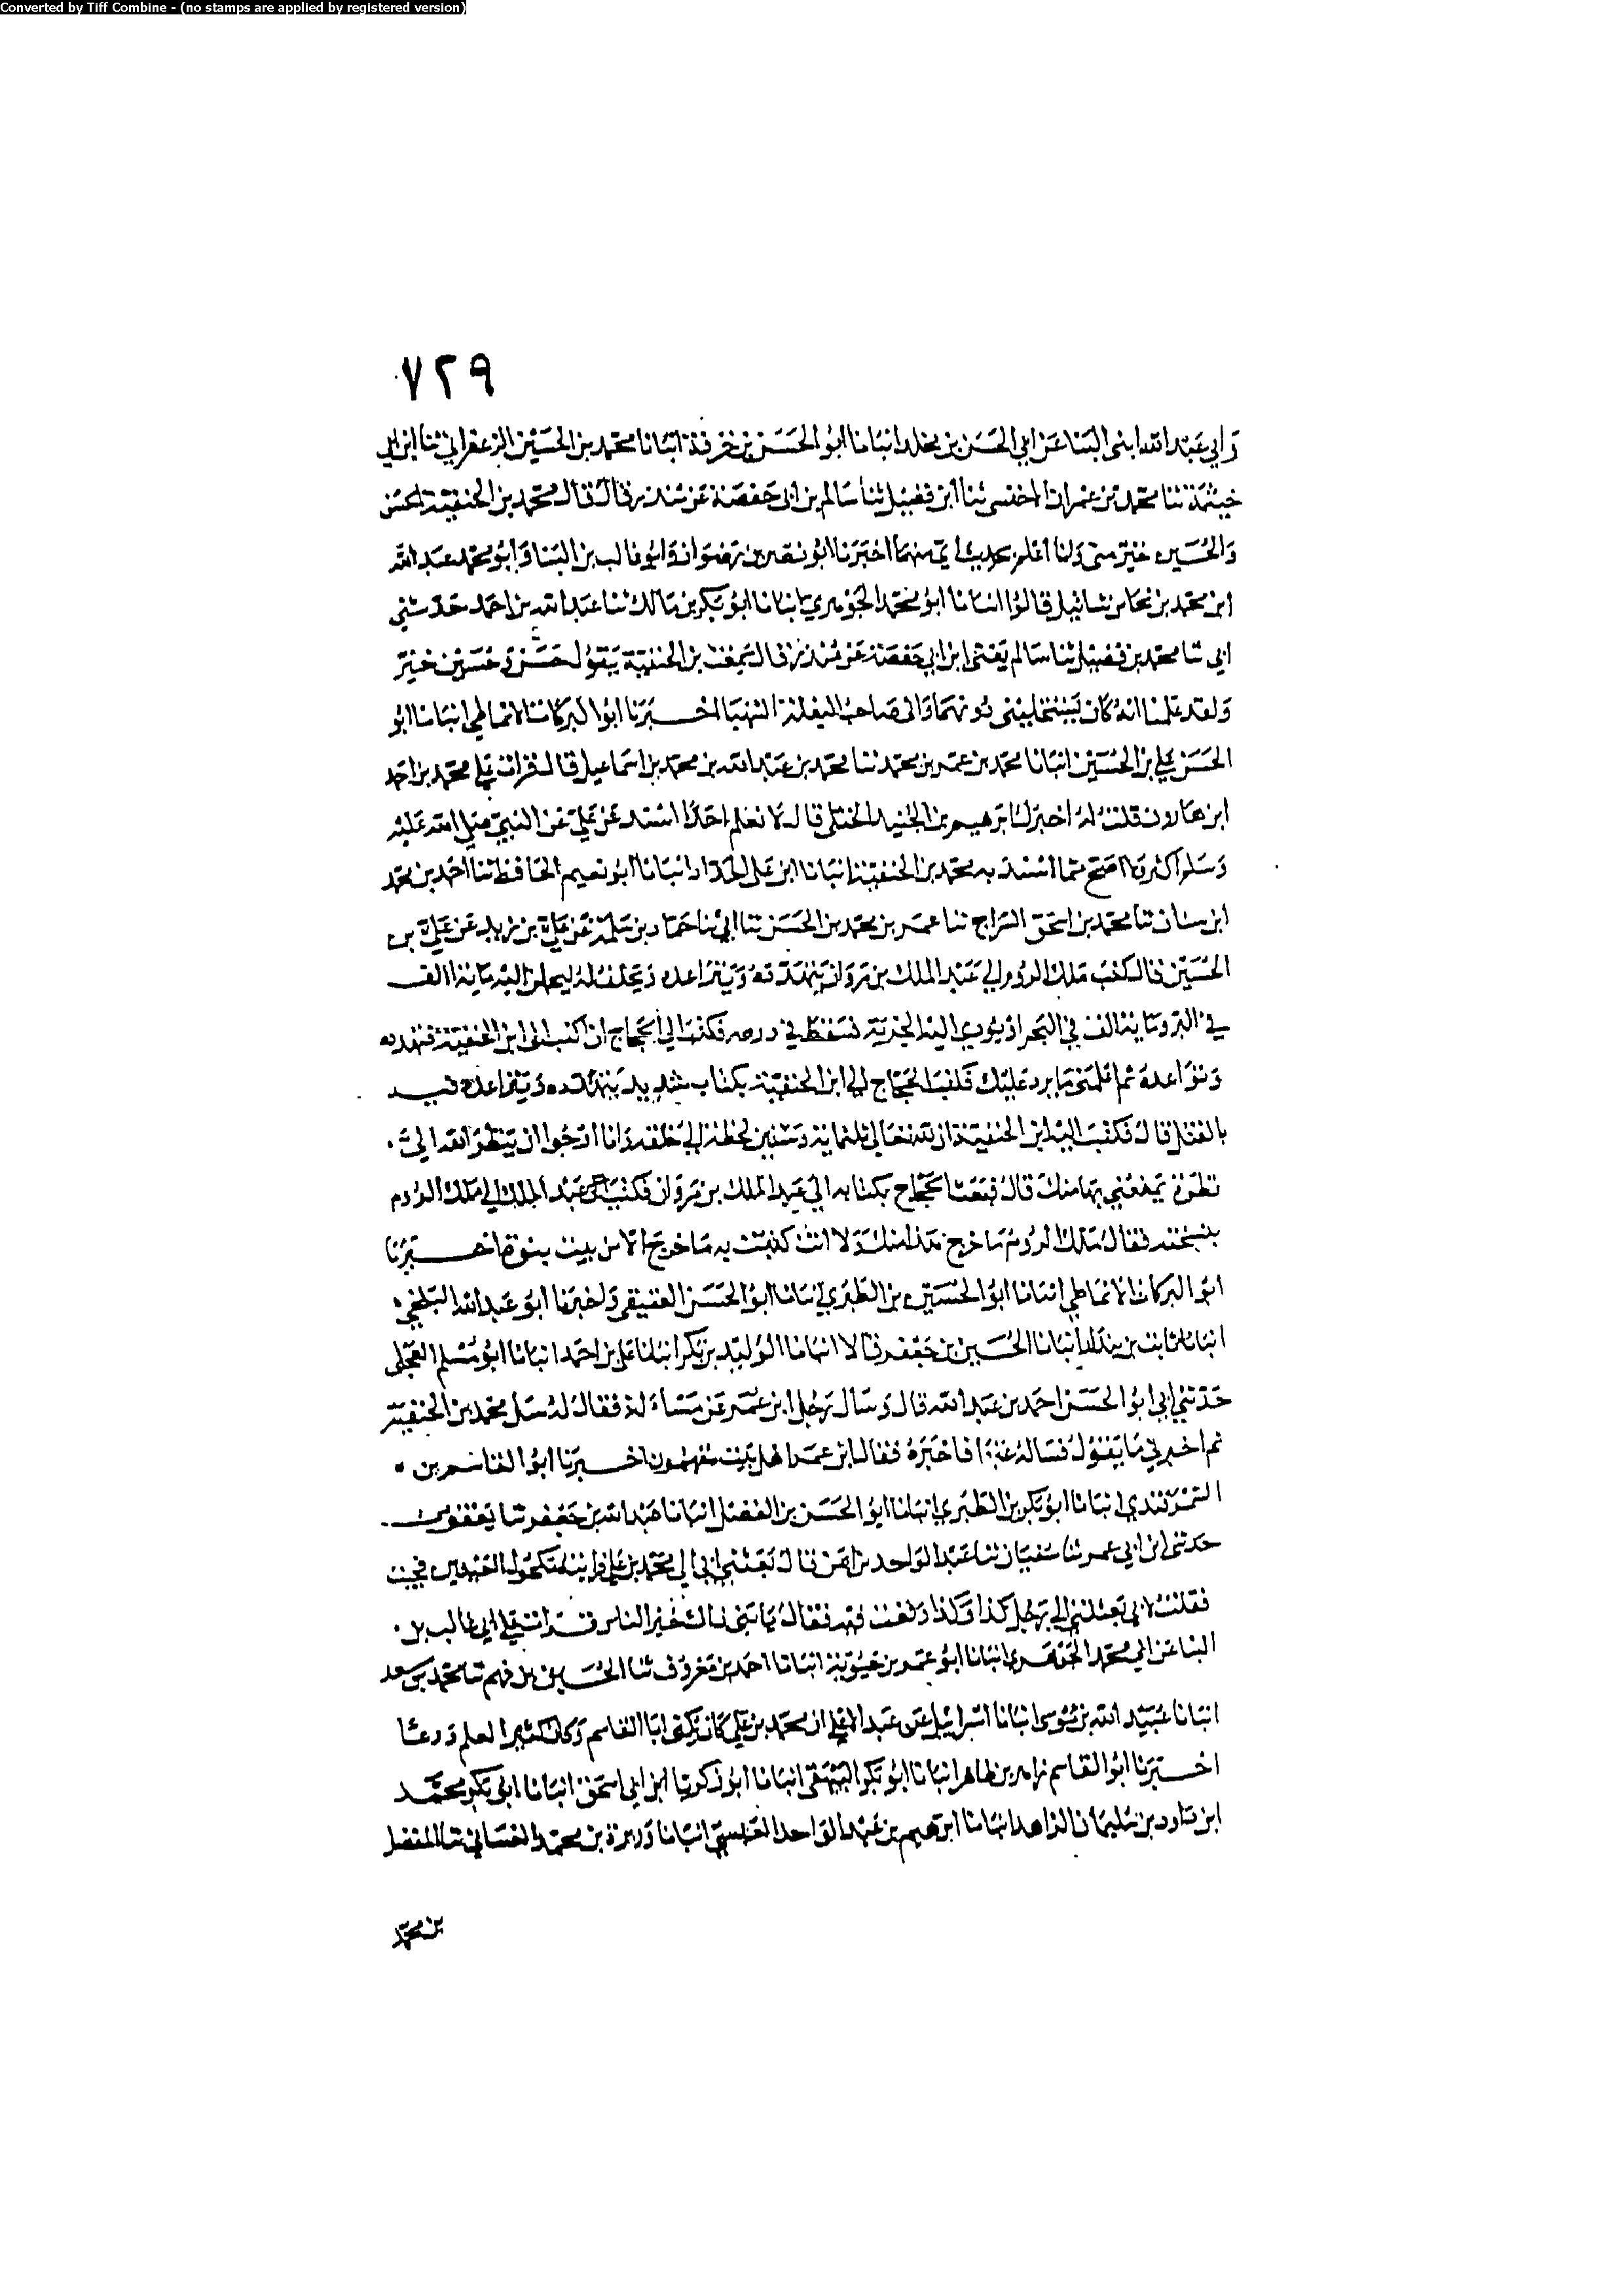 Converted by Tiff Combine - (no stamps are applied by registered version)
٧٢٩
وابي عبد الله ابنى البنا عن ابي الحسن بن مخلد انبانا ابو الحسن بن خزفة انبانا محمد بن الحسين الزعفراني ثنا ابن ابي
خيثمة ثنا محمد بن عمران الاخنسي ثنا ابن فضيل ثنا سالم بن ابي حفصة عن منذر قال قال محمد بن الحنفية الحسن
والحسين خير مني ولنا اعلم بحديث ابي منهما اخبرنا ابو نصر بن رضوان وابو غالب بن البنا وابو محمد عبد الله
ابن محمد بن نجا بن شاتيل قالوا انبانا ابو محمد الجوهري انبانا ابو بكر بن مالك ثنا عبد الله بن احمد حدثني
ابي ثنا محمد بن فضيل ثنا سالم يعني ابن ابي حفصة عن منذر قال سمعت بن الحنفية يقول حسن وحسين خير
ولقد علمنا انه كان يستخليني دونهما واني صاحب البغلة الشهبا اخبرنا ابو البركات الانماطي انبانا ابو
الحسن علي بن الحسين انبانا محمد بن عمر بن محمد ثنا محمد بن عبد الله بن محمد بن اسماعيل قال قرات علي محمد بن احمد
ابن هارون قلت له اخبرك ابرهيم بن الجنيد الختلي قال لا نعلم احدا اسند عن علي عن النبي صلى الله عليه
وسلم اكثر ولا اصح مما اسند به محمد بن الحنفية انبانا ابن علي الحداد انبانا ابو نعيم الحافظ ثنا احمد بن محمد
ابن سنان ثنا محمد بن اسحق السراج ثنا عمر بن محمد بن الحسن ثنا ابي ثنا حماد بن سلمة عن علي بن زيد عن علي بن
الحسين قال كتب ملك الروم الي عبد الملك بن مروان يتهدده ويتواعده ويحلف له ليحملن اليه ماية الف
في البر وماية الف في البحر او يؤدي اليه الجزية فسقط في درعه فكتب الي الحجاج ان كتب الى ابن الحنفية فتهدده
وتواعده ثم اعلمني ما يرد عليك فكتب الحجاج الي ابن الحنفية بكتاب شديد يتهدده ويتواعده فيه
بالقتل قال فكتب اليه ابن الحنفية ان لله تعالى ثلثماية وستين لحظة الي خلقه وانا ارجوا ان ينظر الله الي
نظرة يمنعني بها منك قال فبعث الحجاج بكتابه الي عبد الملك بن مروان فكتب عبد الملك الي ملك الروم
بنسخته فقال ملك الروم ما خرج هذا منك ولا انت كتبت به ما خرج الا من بيت نبوة اخبرنا
ابو البركات الانماطي انبانا ابو الحسين بن الطيوري انبانا ابو الحسن العتيقي واخبرنا ابو عبد الله البلخي
انبانا ثابت بن بندار انبانا الحسين بن جعفر قالا انبانا الوليد بن بكر انبانا علي بن احمد انبانا ابو مسلم العجلي
حدثني ابي ابو الحسن احمد بن عبد الله قال وسال رجل ابن عمر عن مسالة فقال له سل محمد بن الحنفية
ثم اخبرني ما يقول فساله عنها فاخبره فقال ابن عمر اهل بيت مفهمون اخبرنا ابو القاسم بن
السمرقندي انبانا ابو بكر بن الطبري انبانا ابو الحسن بن الفضل انبانا عبد الله بن جعفر ثنا يعقوب
حدثني ابن ابي عمر ثنا سفيان ثنا عبد الواحد بن ايمن قال بعثني ابي الي محمد بن علي فرايته مكحول العينين فجيت
فقلت لابي بعثتني الي رجل كذا وكذا وقعت فيه فقال يا بني ذاك خير الناس قرات علي ابي غالب بن
البنا عن ابي محمد الجوهري انبانا ابو عمر بن حيويه انبانا احمد بن معروف ثنا الحسين بن فهم ثنا محمد بن سعد
انبانا عبيد الله بن موسى انبانا اسرائيل عن عبد الاعلى ان محمد بن علي كان يكنى ابا القاسم وكان كثير العلم ورعا
اخبرنا ابو القاسم زاهر بن طاهر انبانا ابو بكر البيهقي انبانا ابو زكريا ابن ابي اسحق انبانا ابو بكر محمد
ابن داود بن سليمان الزاهد انبانا ابرهيم بن عبد الواحد العبسي انبانا وريزة بن محمد الغساني ثنا المفضل
بن محمد